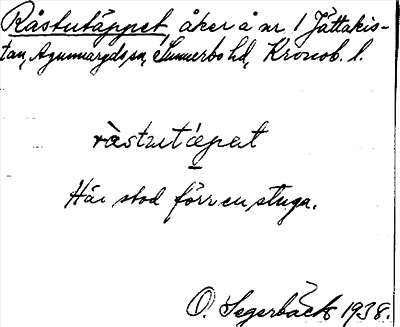 Råstutäppet, åker å nr. 1 Jättakis-
tan, Agunnaryds sn, Sunnerbo hd, Kronob. l.
ràstutápat
Här stod förr en stuga.
O. Segerbäck 1938.